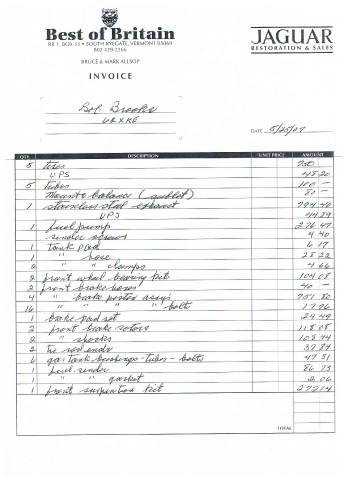 Best of Britain
RR 1, BOX 33 • SOUTH RYEGATE, VERMONT 05069
802 429-2266
BRUCE & MARK ALLSOP
JAGUAR
RESTORATION & SALES
INVOICE
Bob Brooke
DATE 5/25/07
QTY. DESCRIPTION UNIT PRICE AMOUNT
5 tires 750
UPS 48 20
5 tubes 100 —
Mount & balance (sublet) 80 —
1 stainless steel exhaust 794 40
UPS 44 89
1 fuel pump 276 47
sender screws 4 40
1 tank pad 6 17
1 " hose 28 22
2 " " clamps 4 66
2 front wheel bearing kit 104 08
2 front brake hoses 40 —
4 " brake piston assys 751 80
16 " " " " bolts 17 76
1 brake pad set 24 49
2 front brake rotors 118 08
2 " shocks 108 44
2 tie rod ends 37 84
6 gas tank bushings - tubes - bolts 47 51
1 fuel sender 86 73
1 " " gasket 2 06
1 front suspension kit 272 14
TOTAL